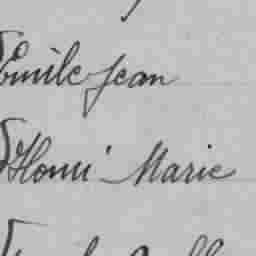 Emile Jean
Henri Marie